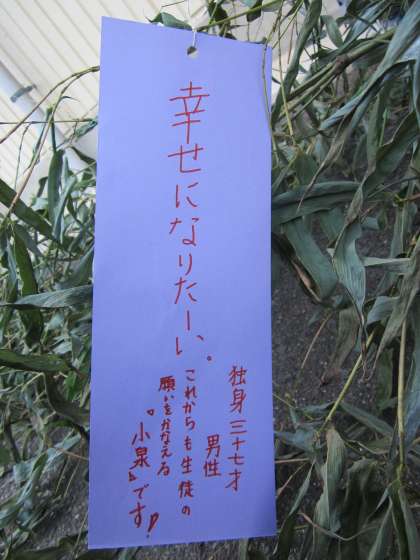 幸せになりたーい。
独身三十七才
男性
これからも生徒の
願いをかなえる
〝小泉〟です!